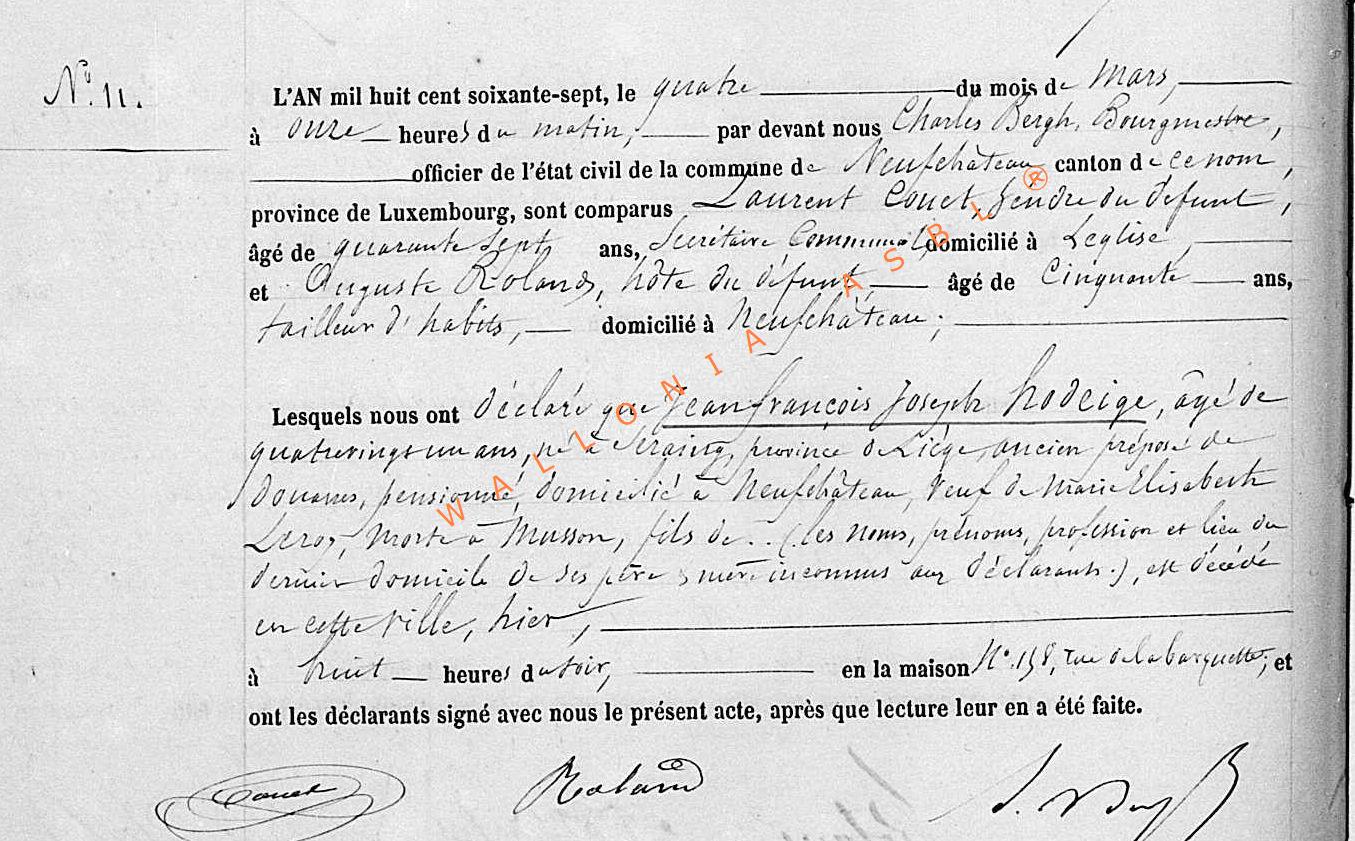 N.º 11.
L'AN mil huit cent soixante-sept, le quatre du mois de Mars,
à onze heures du matin, par devant nous Charles Bergh, Bourgmestre,
officier de l'état civil de la commune de Neufchâteau canton de ce nom,
province de Luxembourg, sont comparus Laurent Couet, gendre du défunt,
âgé de quarante sept ans, Secrétaire Communal, domicilié à Léglise,
et Auguste Roland, hôte du défunt, âgé de Cinquante ans,
tailleur d'habits, domicilié à Neufchâteau;
Lesquels nous ont déclaré que Jean françois Joseph hodeige, âgé de
quatrevingt un ans, né à Seraing, province de Liège, ancien préposé de
douanes, pensionné, domicilié à Neufchâteau, Veuf de Marie Elisabeth
Leroy, morte à Musson, fils de .. (les noms, prénoms, profession et lieu du
dernier domicile de ses père & mère inconnus aux déclarants.), est décédé
en cette Ville, hier,
à huit heures du soir, en la maison Nº. 158, rue de la barquette, et
ont les déclarants signé avec nous le présent acte, après que lecture leur en a été faite.
Couet Roland
WALLONIA ASBL ®